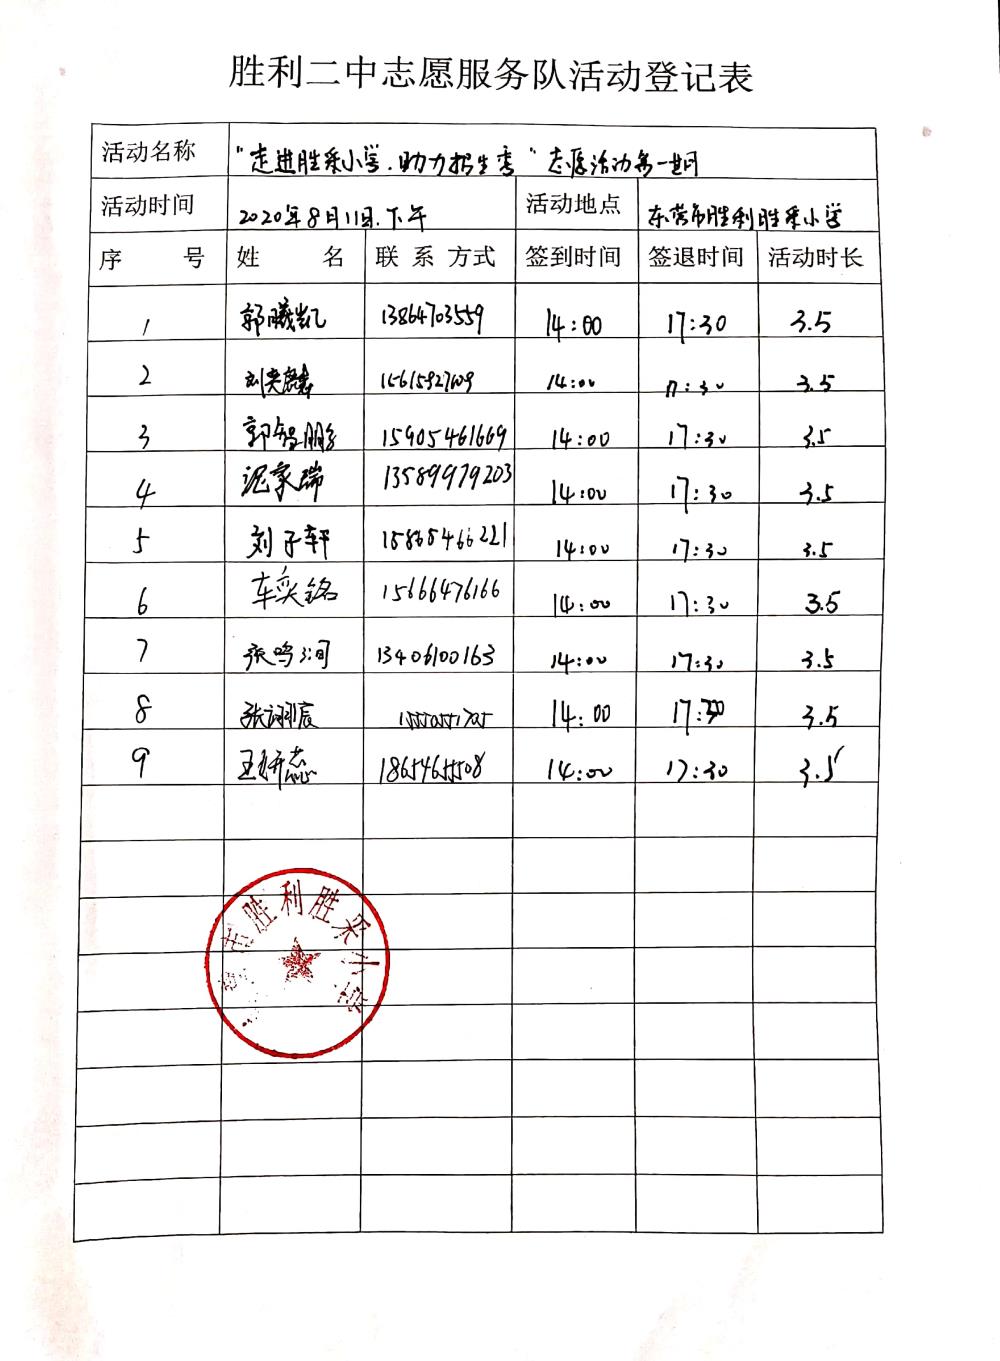 胜利二中志愿服务队活动登记表
活动名称 "走进胜采小学.助力招生季"志愿活动第一期
活动时间 2020年8月11日.下午 活动地点 东营市胜利胜采小学
序号 姓名 联系方式 签到时间 签退时间 活动时长
1 郭曦凯 13864703559 14:00 17:30 3.5
2 14:00 17:30 3.5
3 郭智鹏 15905461669 14:00 17:30 3.5
4 泥家瑞 13589979203 14:00 17:30 3.5
5 刘子轩 15865466221 14:00 17:30 3.5
6 车奕铭 15666476166 14:00 17:30 3.5
7 张鸣涧 13406100163 14:00 17:30 3.5
8 14:00 17:30 3.5
9 18654655508 14:00 17:30 3.5
市胜利胜采小学